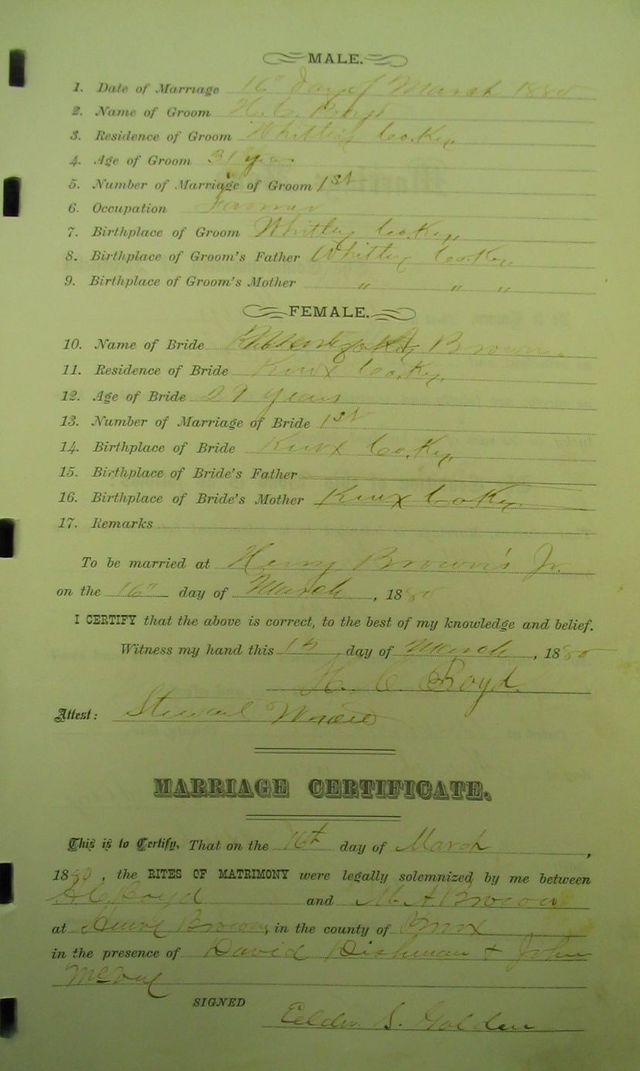 MALE.
1. Date of Marriage 16" Day of March 1880
2. Name of Groom H. C. Boyd
3. Residence of Groom Whitley Co. Ky.
4. Age of Groom 31 years
5. Number of Marriage of Groom 1st
6. Occupation Farmer
7. Birthplace of Groom Whitley Co. Ky.
8. Birthplace of Groom's Father Whitley Co. Ky.
9. Birthplace of Groom's Mother " " "
FEMALE.
10. Name of Bride Brown
11. Residence of Bride Knox Co. Ky.
12. Age of Bride 29 years
13. Number of Marriage of Bride 1st
14. Birthplace of Bride Knox Co. Ky.
15. Birthplace of Bride's Father
16. Birthplace of Bride's Mother Knox Co Ky.
17. Remarks
To be married at Henry Brown's Jr.
on the 16" day of March, 1880
I CERTIFY that the above is correct, to the best of my knowledge and belief.
Witness my hand this 15 day of March, 1880
H. C. Boyd
Attest: Stewart
MARRIAGE CERTIFICATE.
This is to Certify, That on the 16th day of March,
1880, the RITES OF MATRIMONY were legally solemnized by me between
H C Boyd and M. A Brown
at Brown, in the county of Knox
in the presence of David Dishman + John
McVey
SIGNED
Elder S. Golden